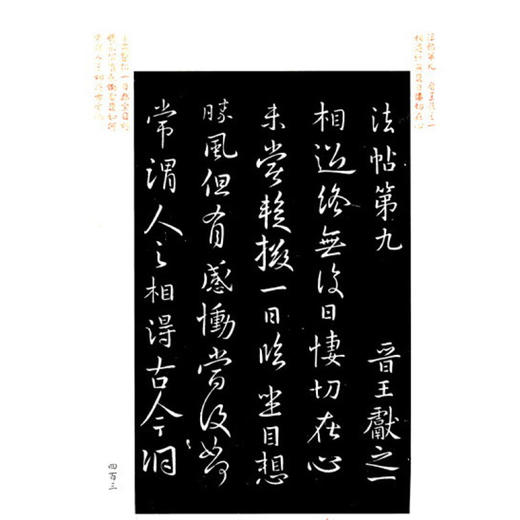 法帖第九 晉王獻之一
相過終無復日悽切在心
未嘗暫撥一日臨坐目想
勝風但有感慟當復如何
常謂人之相得古今洞
四百三